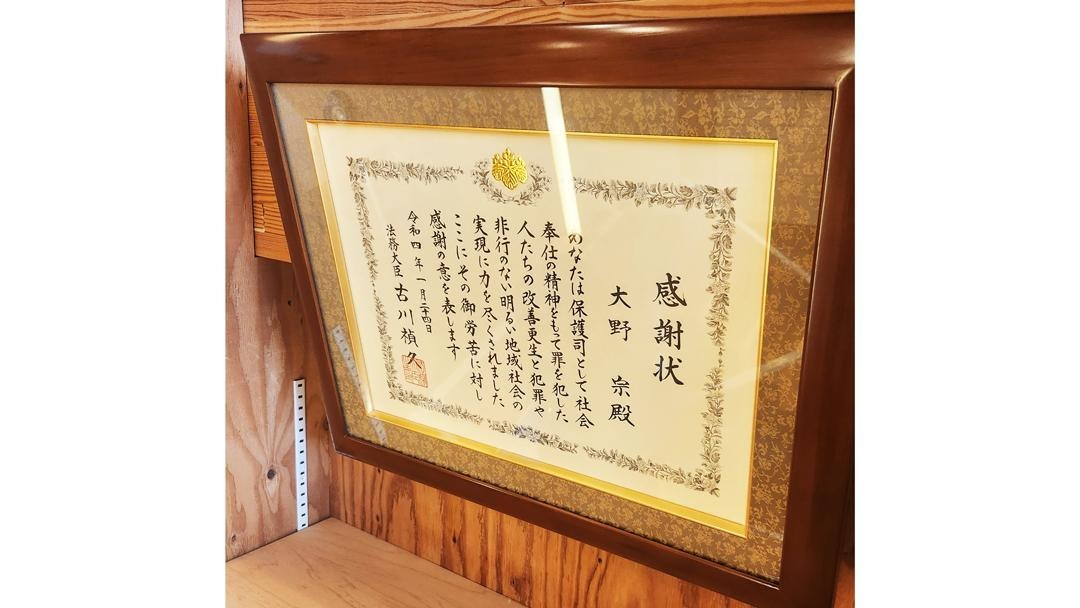 感謝状
大野 宗殿
あなたは保護司として社会
奉仕の精神をもって罪を犯した
人たちの改善更生と犯罪や
非行のない明るい地域社会の
実現に力を尽くされました
ここにその御労苦に対し
感謝の意を表します
令和四年一月二十四日
法務大臣 古川禎久